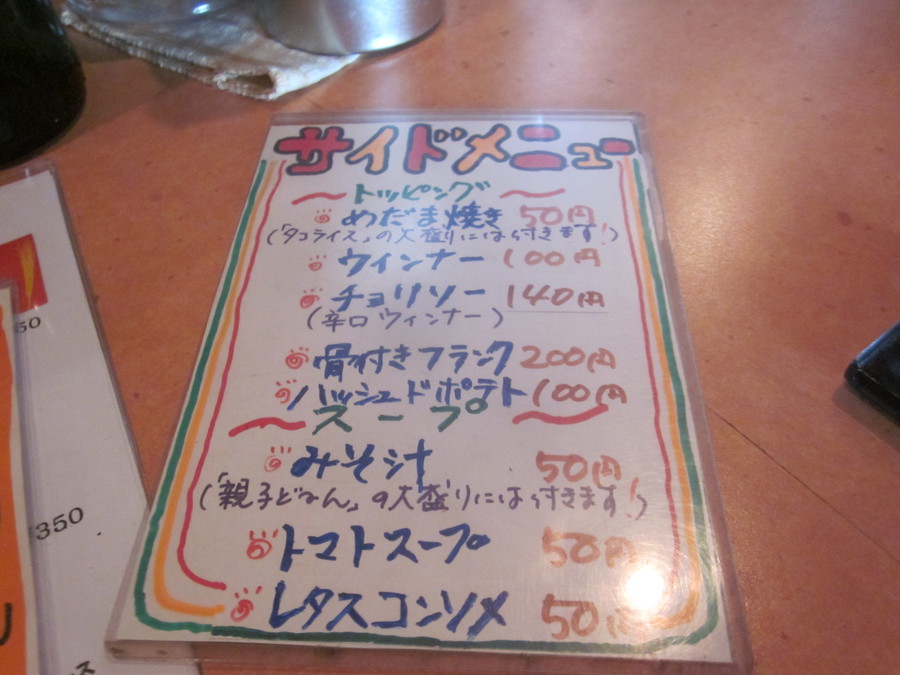 サイドメニュー
トッピング
めだま焼き 50円
(「タコライス」の大盛りには付きます!)
ウインナー 100円
チョリソー 140円
(辛口ウィンナー)
骨付きフランク 200円
ハッシュドポテト 100円
スープ
みそ汁 50円
(「親子どん」の大盛りには付きます!)
トマトスープ 50円
レタスコンソメ 50円
350